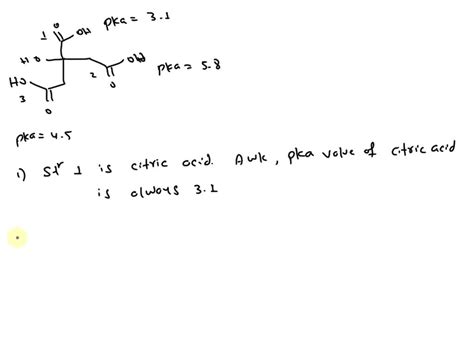 O
1 OH pka = 3.1
HO
HO 2 OH pka = 5.8
3 O
O
pka = 4.5
1) Str 1 is citric acid. Awk, pka value of citric acid
is always 3.1